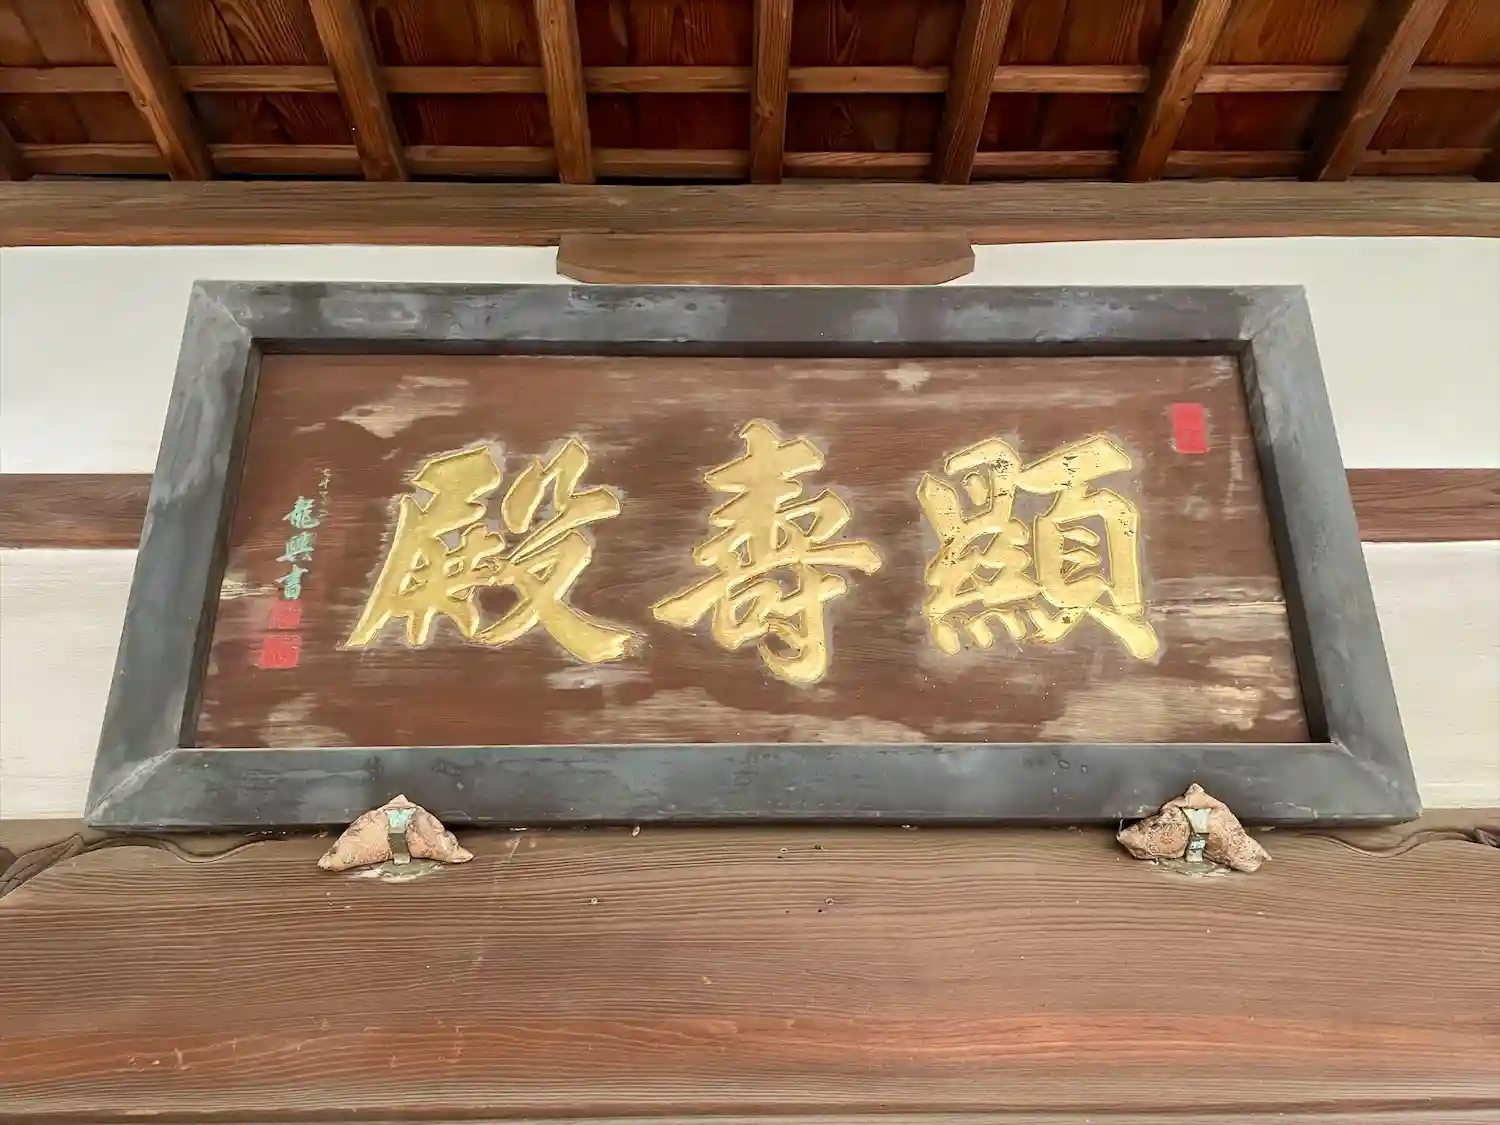 顯壽殿
龍興書